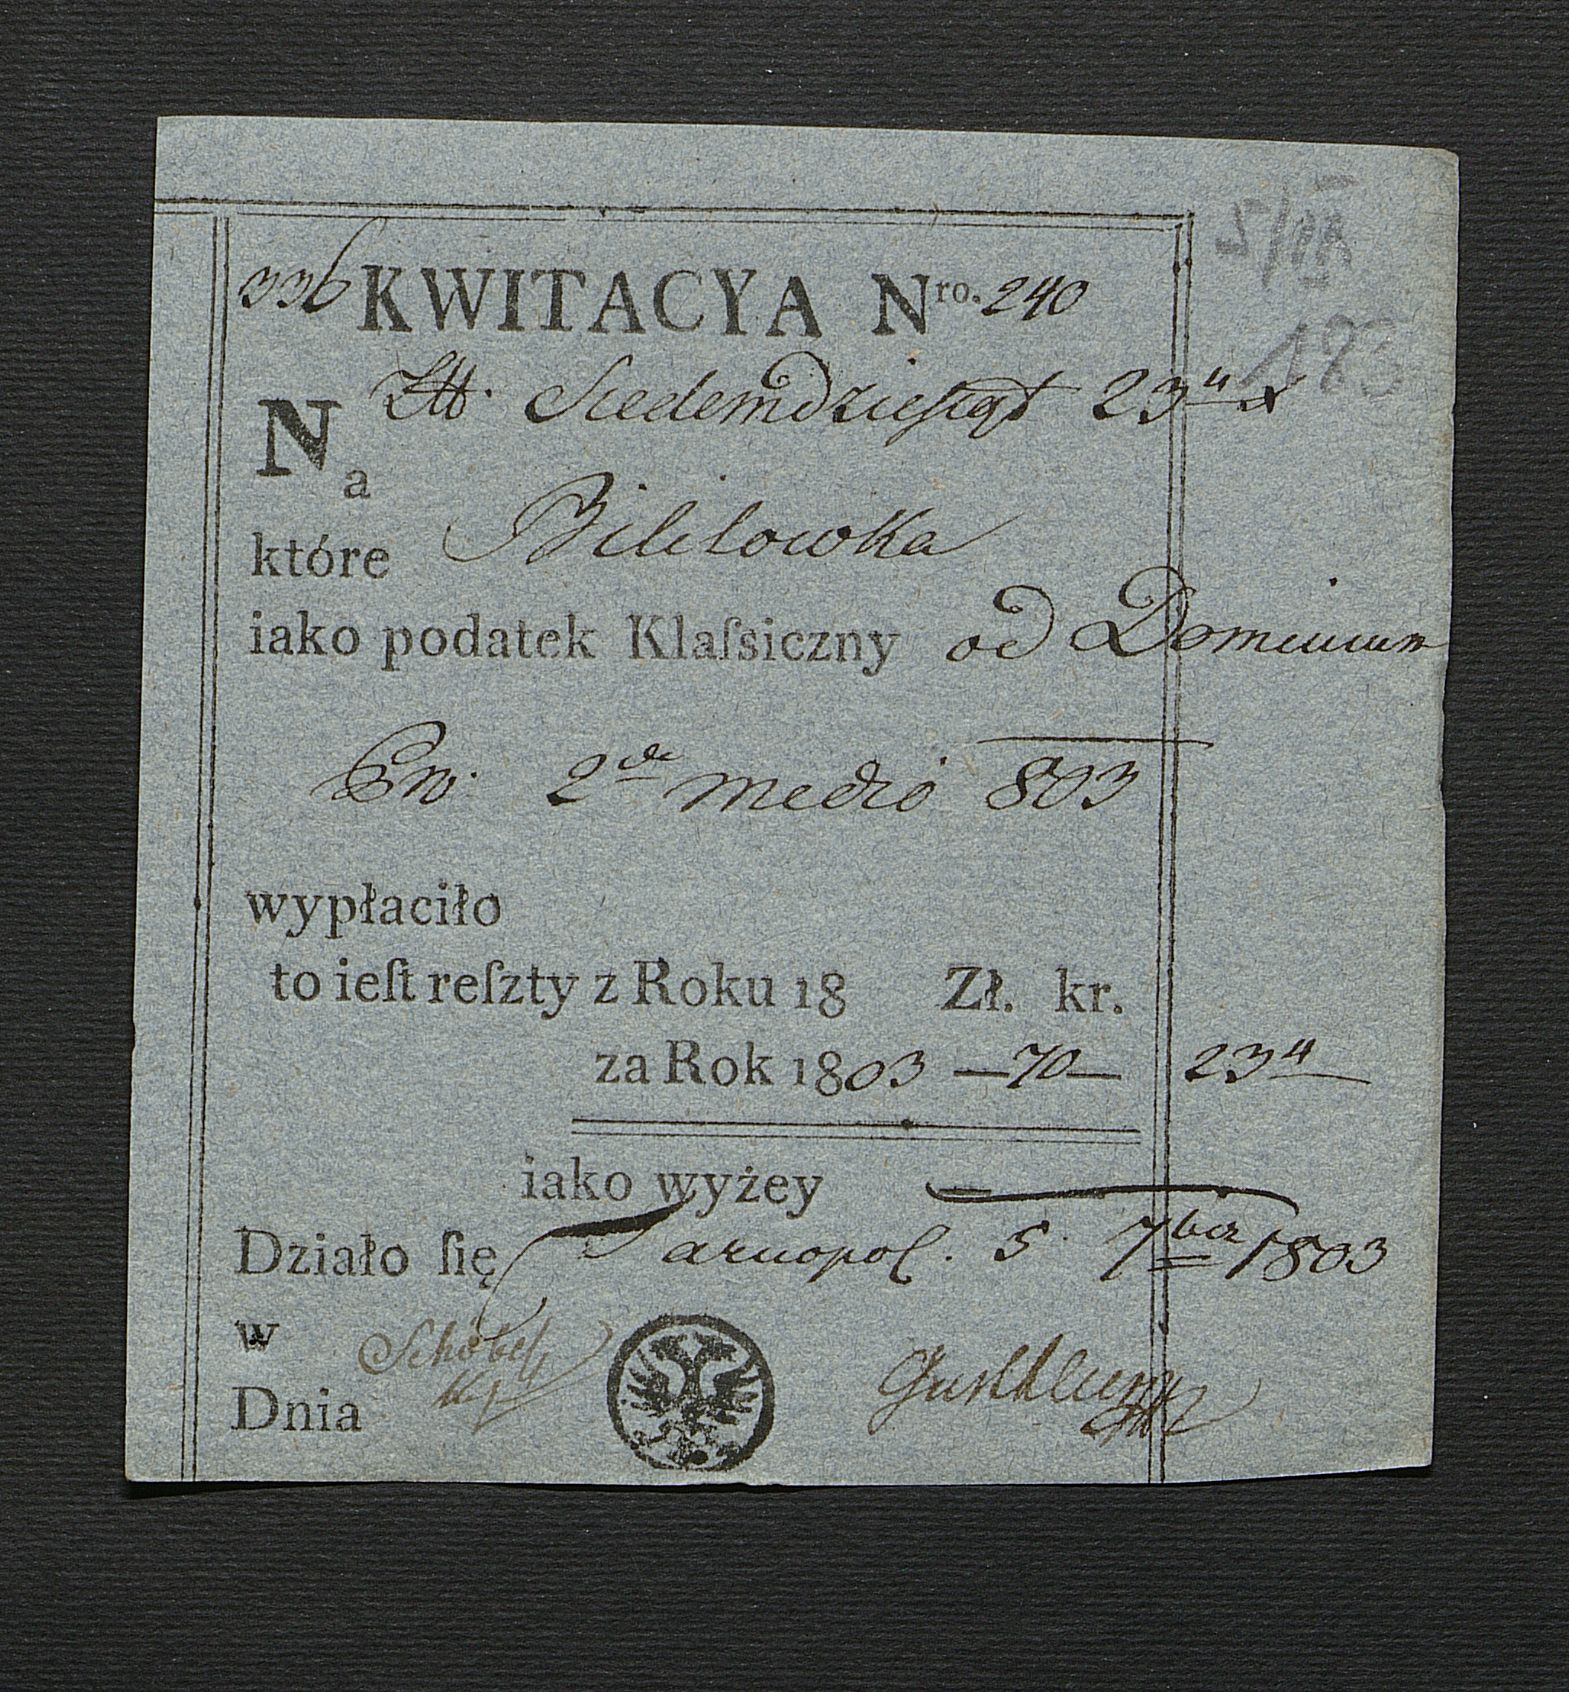 5/IX
183
336 KWITACYA Nro. 240
Na Złt. Siedemdziesiąt 23 4 x
które Bililowka
iako podatek Klaſsiczny od Dominium
Pro 2da medio 803
wypłaciło
to ieſt reſzty z Roku 18 Zł. kr.
za Rok 1803 — 70 — 23 4
iako wyżey
Działo ſię Tarnopol. 5. 7ber 1803
w
Dnia